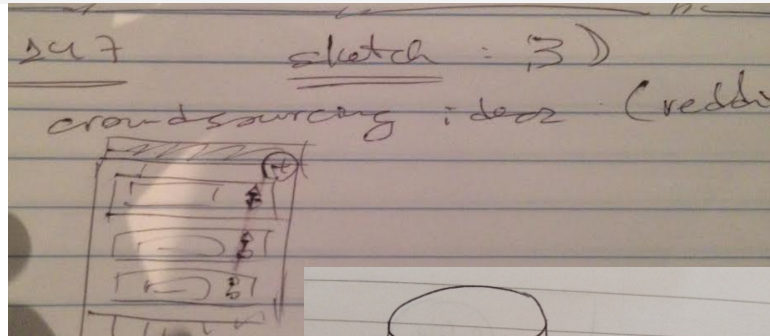 sketch : 3)
crowdsourcing ideas (reddi